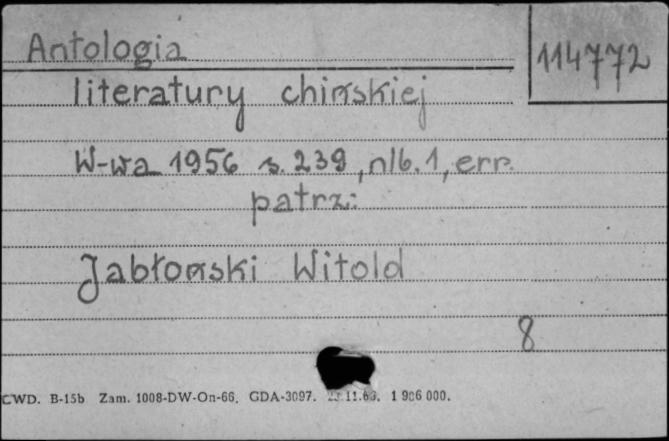 Antologia
114772
literatury chińskiej
W-wa 1956 s. 239, nlb. 1, err.
patrz:
Jabłoński Witold
8
CWD. B-15b Zam. 1008-DW-On-66. GDA-3097. 11.66. 1 986 000.